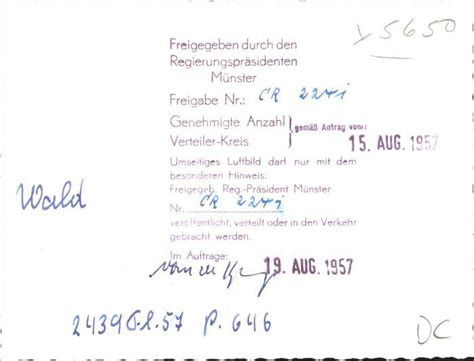 y 5650
Freigegeben durch den
Regierungspräsidenten
Münster
Freigabe Nr.: CR 224i
Genehmigte Anzahl
Verteiler-Kreis
gemäß Antrag vom:
15. AUG. 1957
Umseitiges Luftbild darf nur mit dem
besonderen Hinweis:
Freigegeb. Reg.-Präsident Münster
Nr. CR 224i
veröffentlicht, verteilt oder in den Verkehr
gebracht werden.
Im Auftrage:
19. AUG. 1957
Wald
P. 646
DC